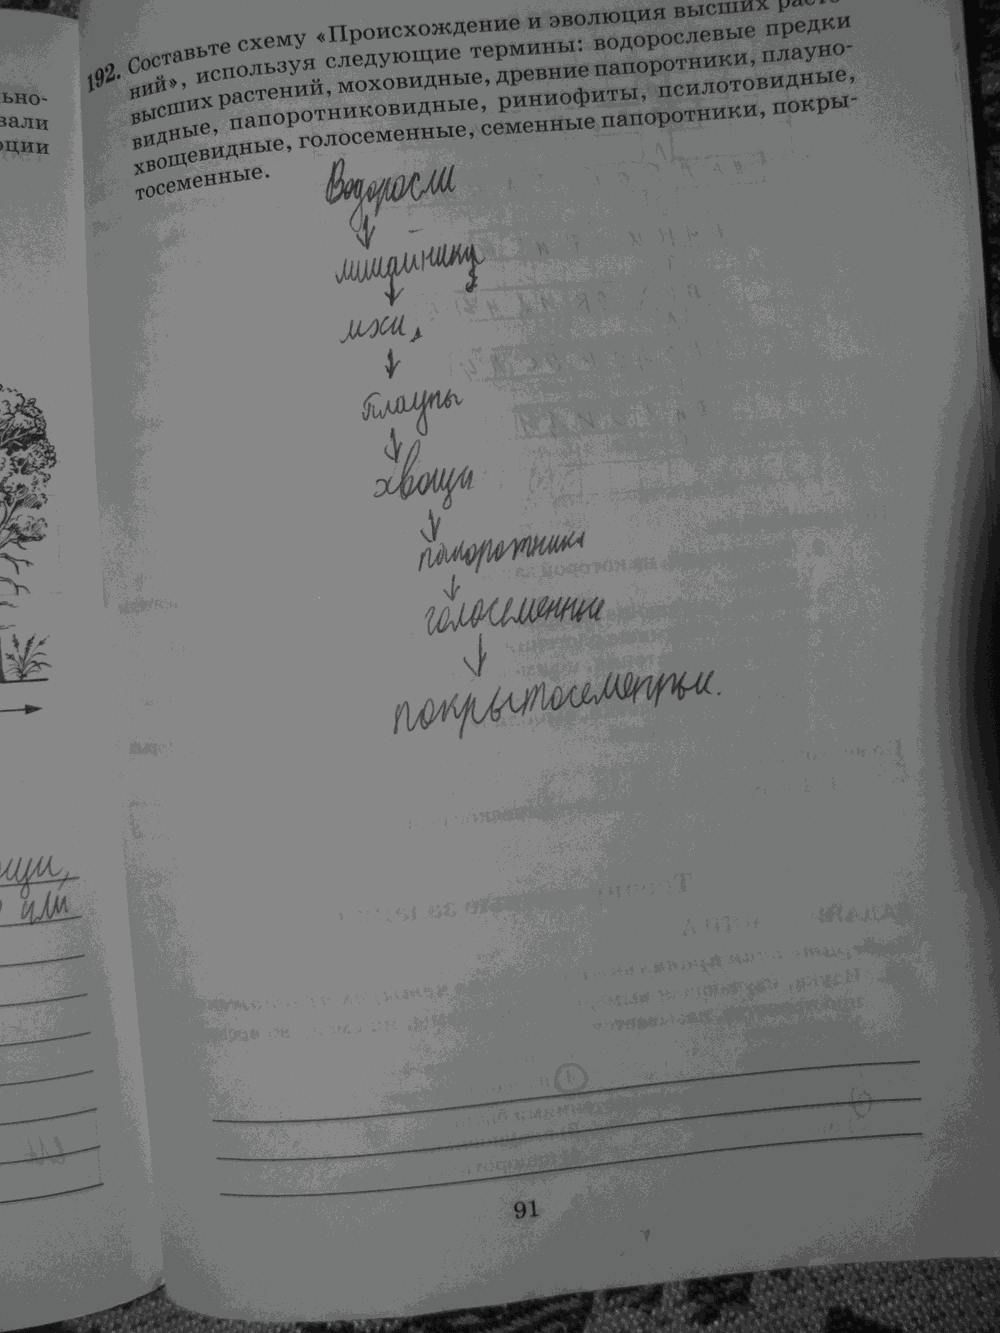 льно-
вали
юции
192. Составьте схему «Происхождение и эволюция высших расте-
ний», используя следующие термины: водорослевые предки
высших растений, моховидные, древние папоротники, плауно-
видные, папоротниковидные, риниофиты, псилотовидные,
хвощевидные, голосеменные, семенные папоротники, покры-
тосеменные.
Водоросли
лишайники
мхи
Плауны
хвощи
папоротники
голосеменные
покрытосеменные.
ощи,
или
91